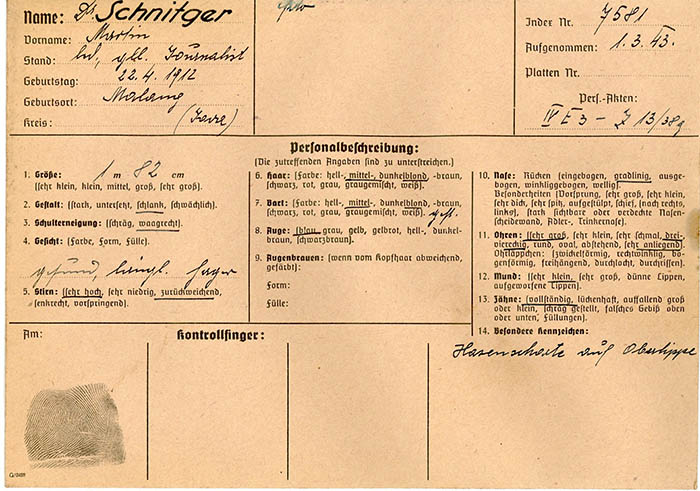 Name: Dr Schnitger
Vorname: Martin
Stand: led, gbl. Journalist
Geburtstag: 22.4.1912
Geburtsort: Malang
Kreis: (Java)
Index Nr. 7581
Aufgenommen: 1.3.43.
Platten Nr.
Pers.-Akten:
IV E 3 – J 13/38g
Personalbeschreibung:
(Die zutreffenden Angaben sind zu unterstreichen.)
1. Größe: 1 m 82 cm
(sehr klein, klein, mittel, groß, sehr groß).
2. Gestalt: (stark, untersetzt, schlank, schwächlich).
3. Schulterneigung: (schräg, waagrecht).
4. Gesicht: (Farbe, Form, Fülle).
gesund, längl. hager
5. Stirn: (sehr hoch, sehr niedrig, zurückweichend,
senkrecht, vorspringend).
6. Haar: (Farbe: hell-, mittel-, dunkelblond, -braun,
schwarz, rot, grau, graugemischt, weiß).
7. Bart: (Farbe: hell-, mittel-, dunkelblond, -braun,
schwarz, rot, grau, graugemischt, weiß).
8. Auge: (blau, grau, gelb, gelbrot, hell-, dunkel-
braun, schwarzbraun).
9. Augenbrauen: (wenn vom Kopfhaar abweichend,
gefärbt):
Form:
Fülle:
10. Nase: Rücken (eingebogen, gradlinig, ausge-
bogen, winkliggebogen, wellig).
Besonderheiten (Vorsprung, sehr groß, sehr klein,
sehr dick, sehr spitz, aufgestülpt, schief, (nach rechts,
links), stark sichtbare oder verdeckte Nasen-
scheidewand, Adler-, Trinkernase).
11. Ohren: (sehr groß, sehr klein, sehr schmal, drei-,
viereckig, rund, oval, abstehend, sehr anliegend).
Ohrläppchen: (zwickelförmig, rechtwinklig, bo-
genförmig, freihängend, durchlocht, durchrissen).
12. Mund: (sehr klein, sehr groß, dünne Lippen,
aufgeworfene Lippen).
13. Zähne: (vollständig, lückenhaft, auffallend groß
oder klein, schräg gestellt, falsches Gebiß oben
oder unten, Füllungen).
14. Besondere Kennzeichen:
Hasenscharte auf Oberlippe
Am:
Kontrollfinger: